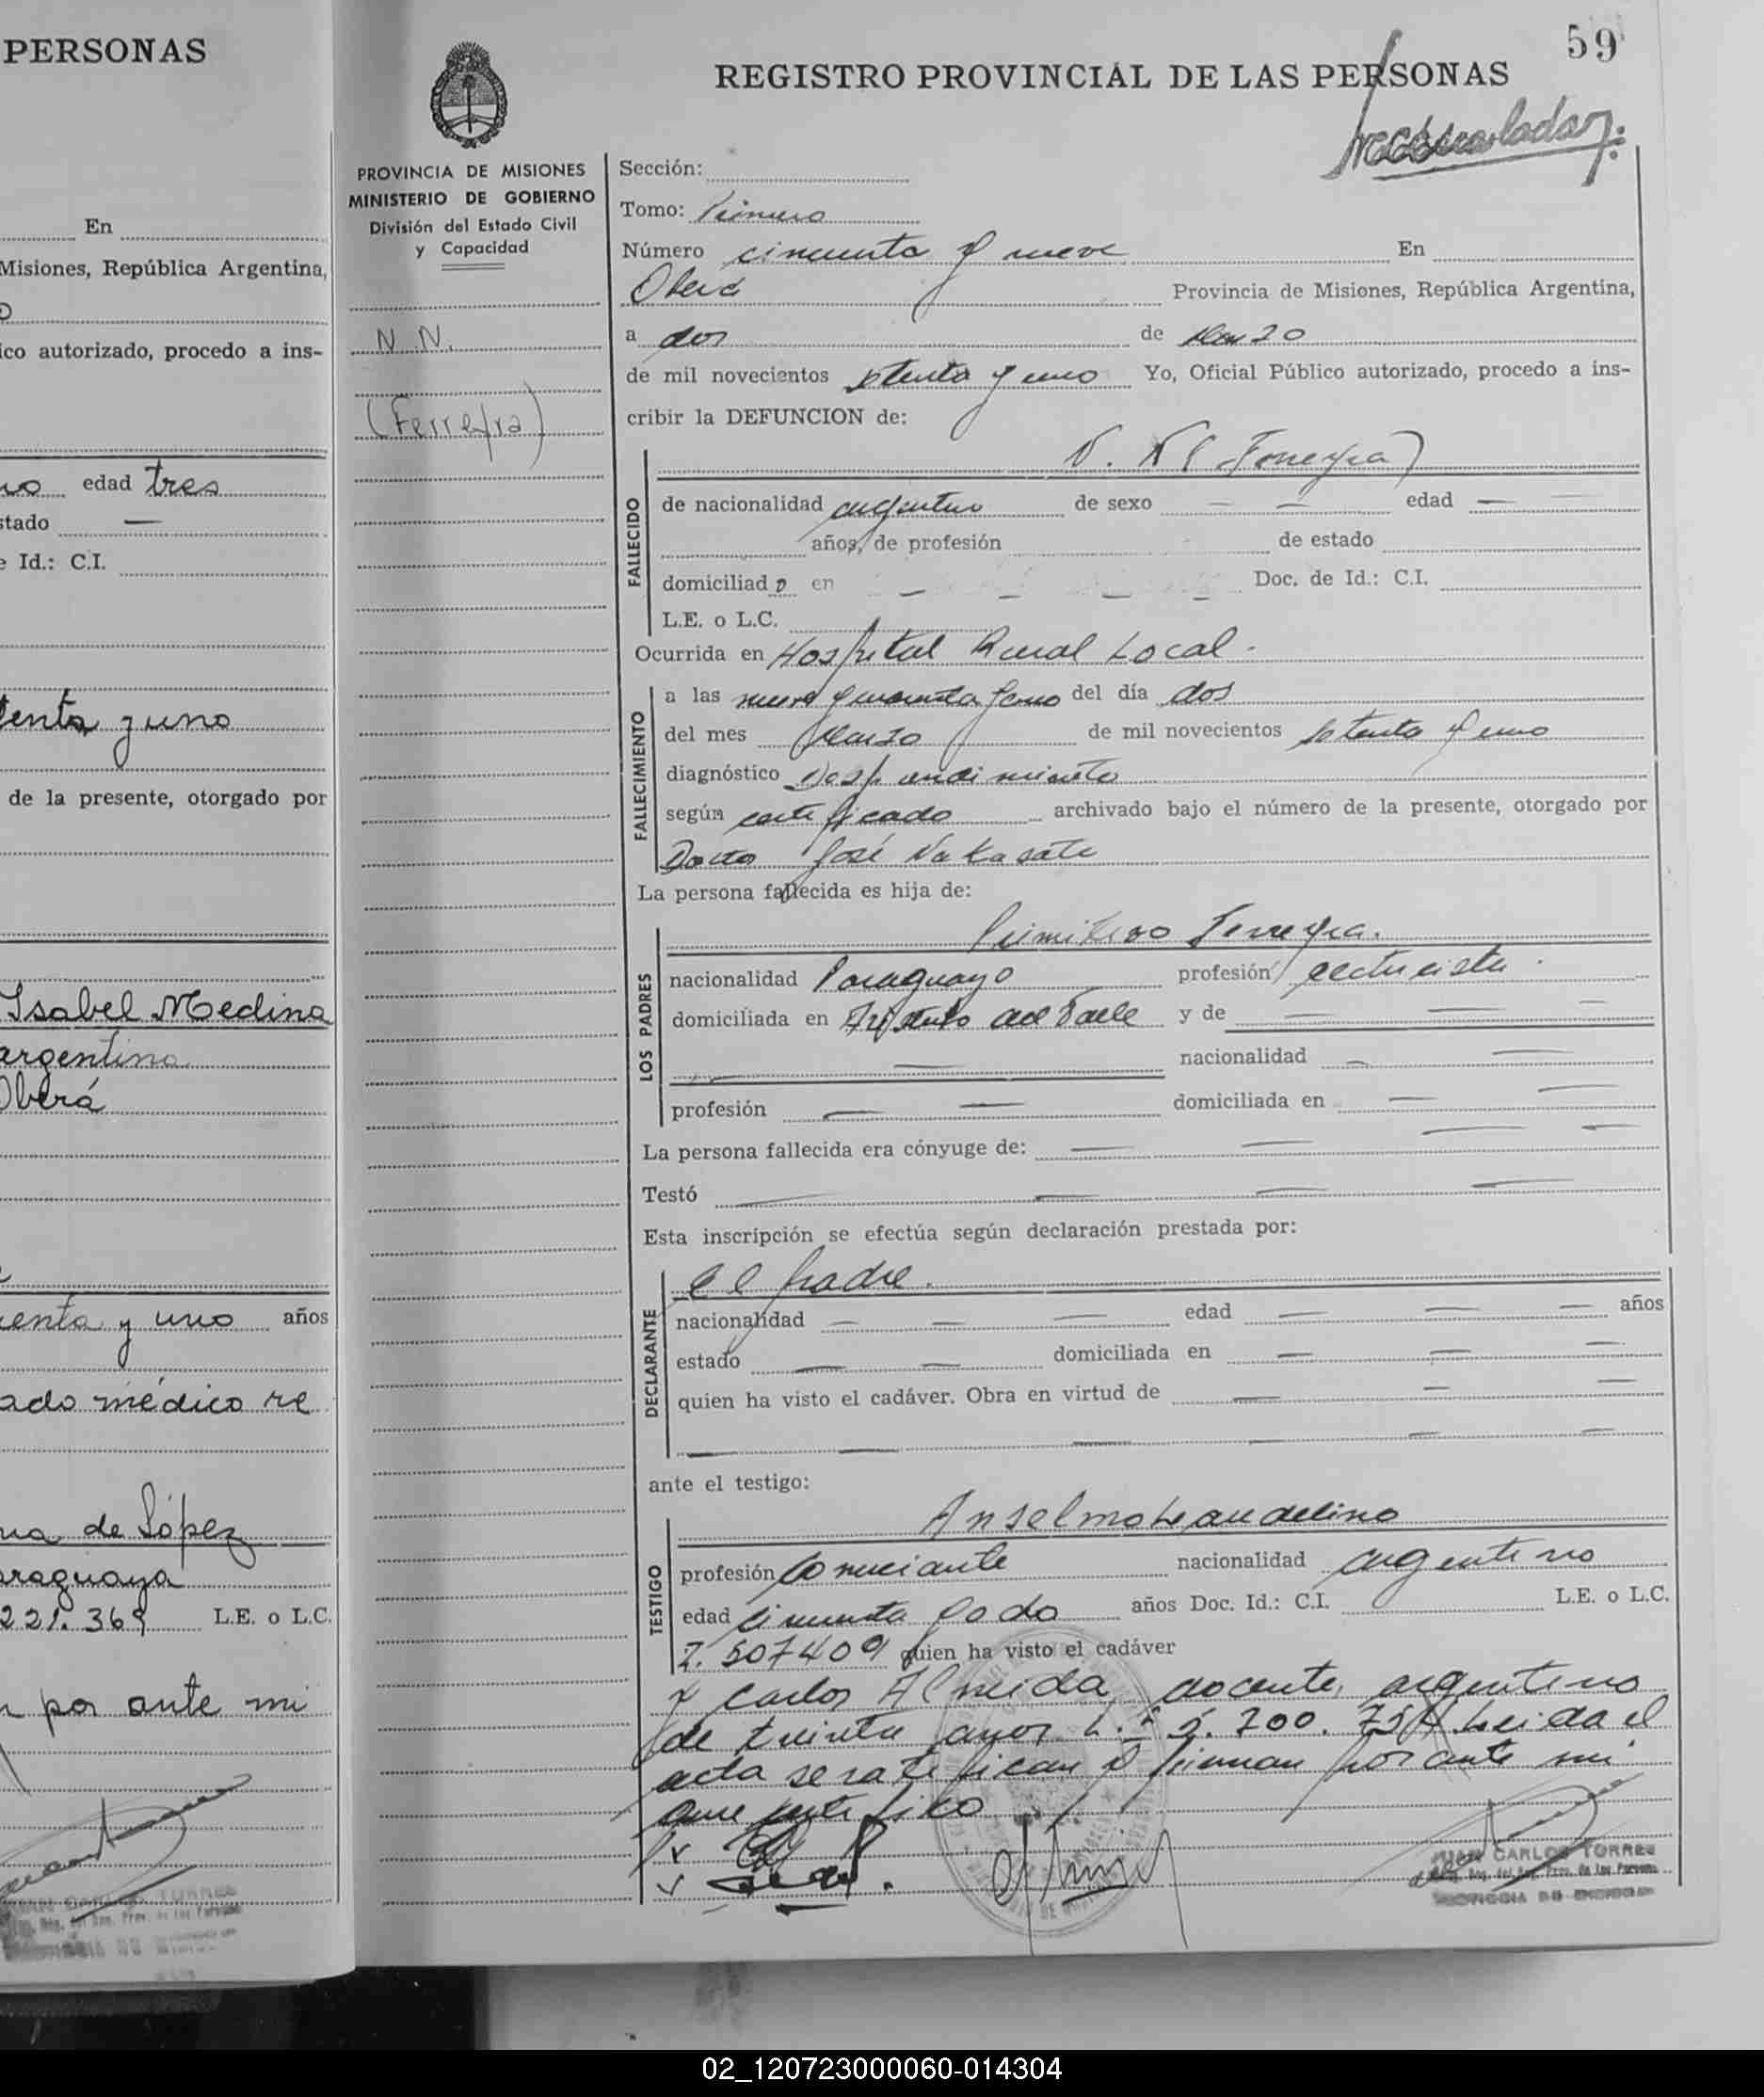 PERSONAS
En
Misiones, República Argentina,
ico autorizado, procedo a ins-
edad tres
stado —
e Id.: C.I.
tenta y uno
de la presente, otorgado por
Isabel Medina
argentina
Oberá
enta y uno años
ado médico re
na de López
araguaya
221.369 L.E. o L.C.
n por ante mi
59
REGISTRO PROVINCIAL DE LAS PERSONAS
PROVINCIA DE MISIONES
MINISTERIO DE GOBIERNO
División del Estado Civil
y Capacidad
N.N.
(Ferreyra)
Sección:
Tomo: Primero
Número cincuenta y nueve En
Oberá Provincia de Misiones, República Argentina,
a dos de Marzo
de mil novecientos setenta y uno Yo, Oficial Público autorizado, procedo a ins-
cribir la DEFUNCION de:
N. N (Ferreyra)
FALLECIDO
de nacionalidad argentino de sexo — — edad —
años, de profesión de estado
domiciliado en — — — — Doc. de Id.: C.I.
L.E. o L.C.
Ocurrida en Hospital Rural Local.
FALLECIMIENTO
a las nueve y cuarenta y cinco del día dos
del mes Marzo de mil novecientos setenta y uno
diagnóstico Desprendimiento
según certificado archivado bajo el número de la presente, otorgado por
Doctor José Nakasate
La persona fallecida es hija de:
LOS PADRES
Primitivo Ferreyra.
nacionalidad Paraguayo profesión
domiciliada en Aristóbulo del Valle y de — — —
— — nacionalidad — —
profesión — — domiciliada en — —
La persona fallecida era cónyuge de: — — — —
Testó — — — —
Esta inscripción se efectúa según declaración prestada por:
DECLARANTE
el padre.
nacionalidad — — — edad — — — años
estado — — domiciliada en — — —
quien ha visto el cadáver. Obra en virtud de — — —
— — — — — —
ante el testigo:
TESTIGO
Anselmo Laudelino
profesión Comerciante nacionalidad argentino
edad años Doc. Id.: C.I. L.E. o L.C.
7.507409 quien ha visto el cadáver
y Carlos Almeida, docente, argentino
de treinta años L. Leida el
acta se ratifican y firman por ante mi
que certifico
JUAN CARLOS TORRES
02_120723000060-014304